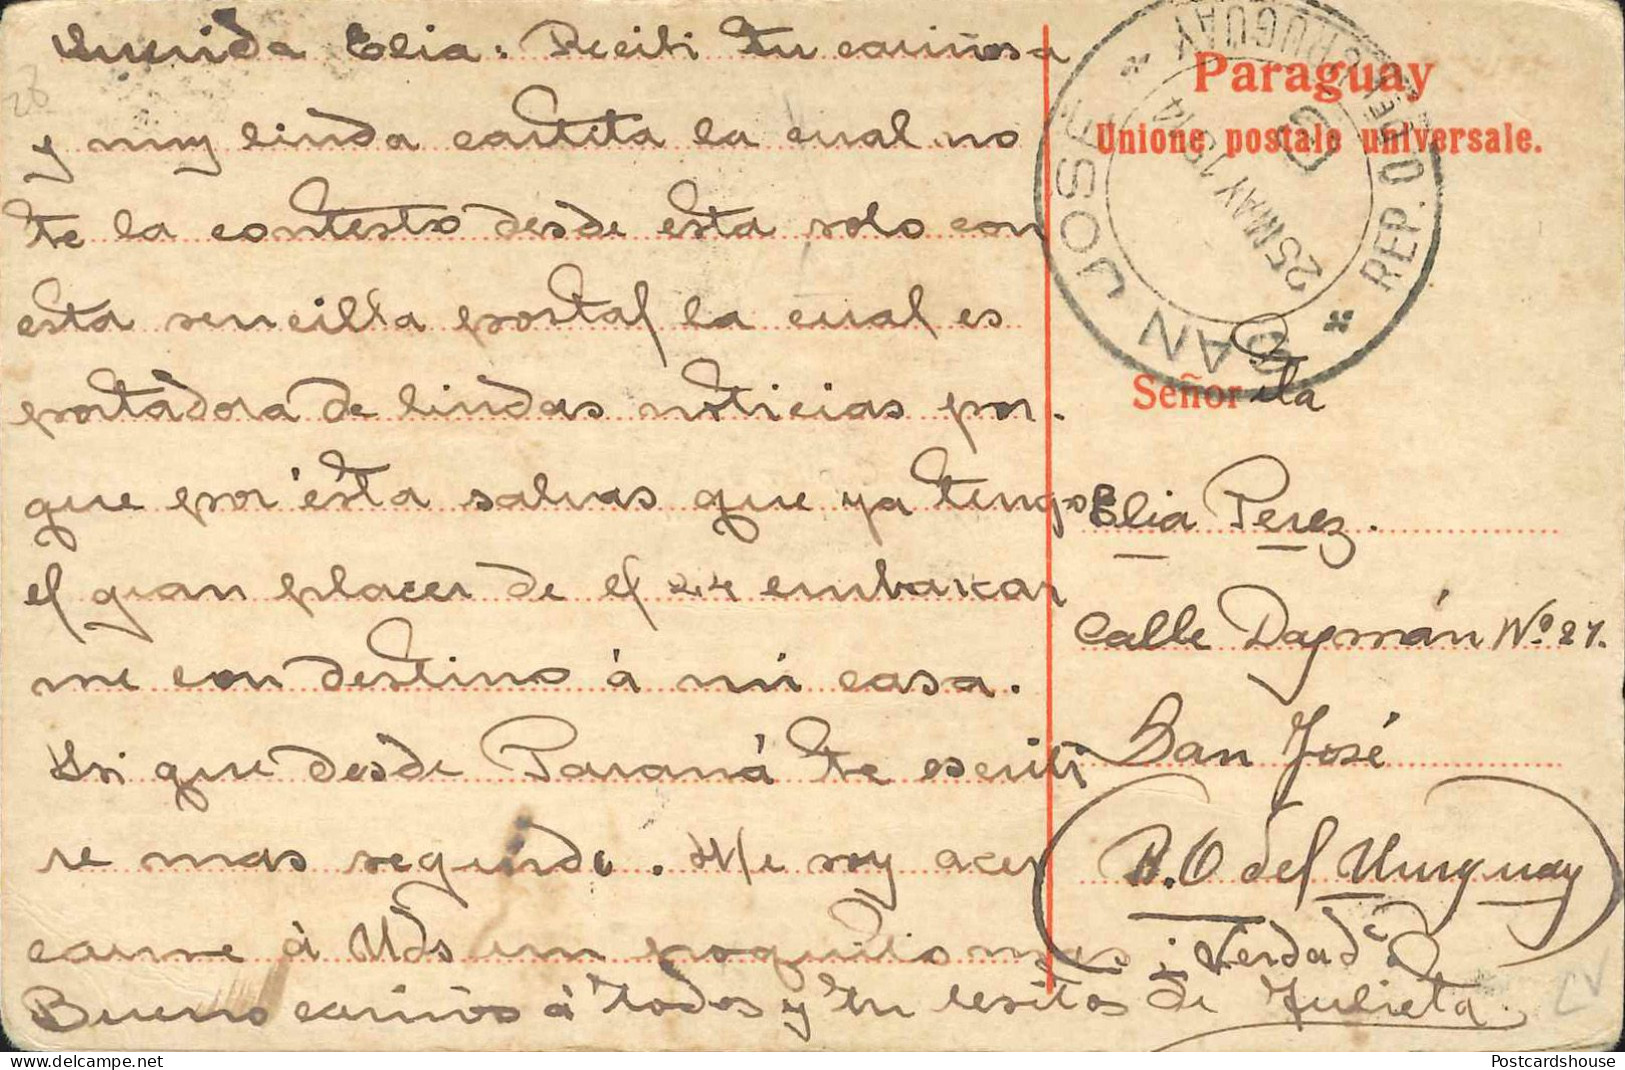 Querida Elia: Recibi tu cariñosa
y muy linda cartita la cual no
te la contesto desde esta solo con
esta sencilla postal la cual es
portadora de lindas noticias por.
que por ésta sabras que ya tengo
el gran placer de el 24 embarcar
me con destino á mi casa.
Si que desde Paraná te escribi
re mas seguido. Me voy acer
carme á Uds un poquito mas ¿verdad?
Bueno cariños á todos y tu besitos de Julieta.
Paraguay
Unione postale universale.
SAN JOSE
REP. O. DEL URUGUAY
25 MAY 1914
Señorita
Elia Perez.
Calle Daymán Nº 27.
San José
R.O del Uruguay
28
Postcardshouse